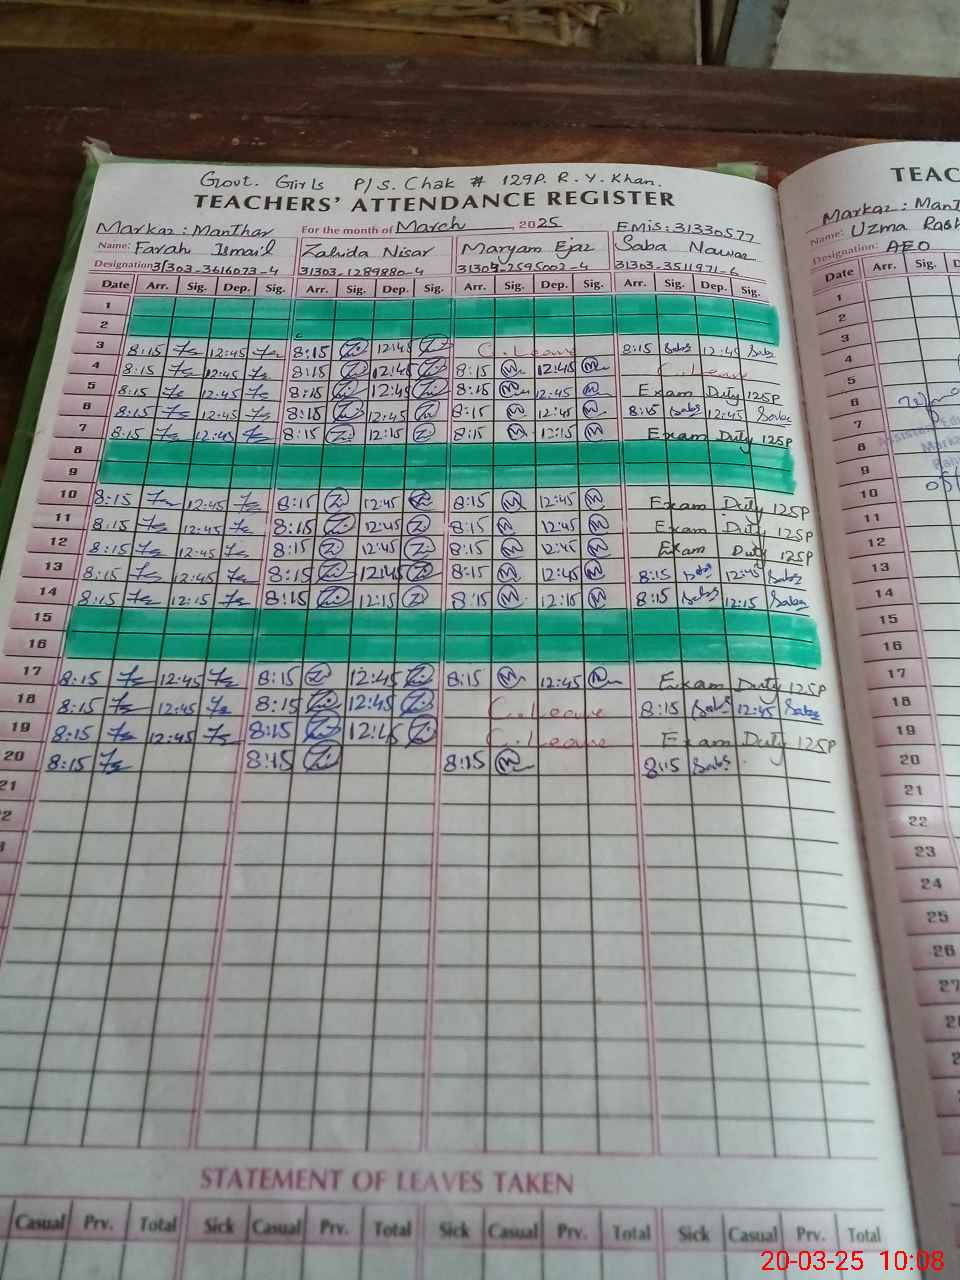 Govt. Girls P/S. Chak # 129P. R. Y. Khan.
TEACHERS' ATTENDANCE REGISTER
Markaz: Manthar For the month of March, 2025 EMIS: 31330577
Name: Farah Ismail Zahida Nisar Maryam Ejaz Saba Nawaz
Designation 31303-3616073-4 31303-1289880-4 31304-2595002-4 31303-3511971-6
Date Arr. Sig. Dep. Sig. Arr. Sig. Dep. Sig. Arr. Sig. Dep. Sig. Arr. Sig. Dep. Sig.
1
2
3 8:15 12:45 8:15 12:45 C.Leave 8:15 Saba 12:45 Saba
4 8:15 12:45 8:15 12:45 8:15 12:45 C.Leave
5 8:15 12:45 8:15 12:45 8:15 12:45 Exam Duty 125P
6 8:15 12:45 8:15 12:45 8:15 12:45 8:15 Saba 12:45 Saba
7 8:15 12:45 8:15 12:15 8:15 12:15 Exam Duty 125P
8
9
10 8:15 12:45 8:15 12:45 8:15 12:45 Exam Duty 125P
11 8:15 12:45 8:15 12:45 8:15 12:45 Exam Duty 125P
12 8:15 12:45 8:15 12:45 8:15 12:45 Exam Duty 125P
13 8:15 12:45 8:15 12:45 8:15 12:45 8:15 Saba 12:45 Saba
14 8:15 12:15 8:15 12:15 8:15 12:15 8:15 Saba 12:15 Saba
15
16
17 8:15 12:45 8:15 12:45 8:15 12:45 Exam Duty 125P
18 8:15 12:45 8:15 12:45 C.Leave 8:15 Saba 12:45 Saba
19 8:15 12:45 8:15 12:45 C.Leave Exam Duty 125P
20 8:15 8:15 8:15 8:15 Saba
21
2
STATEMENT OF LEAVES TAKEN
Casual Prv. Total Sick Casual Prv. Total Sick Casual Prv. Total Sick Casual Prv. Total
TEAC
Markaz: Mant
Name: Uzma Rash
Designation: AEO
Date Arr. Sig. D
1
2
3
4
5
6
7
8
9
10
11
12
13
14
15
16
17
18
19
20
21
22
23
24
25
26
27
20-03-25 10:08